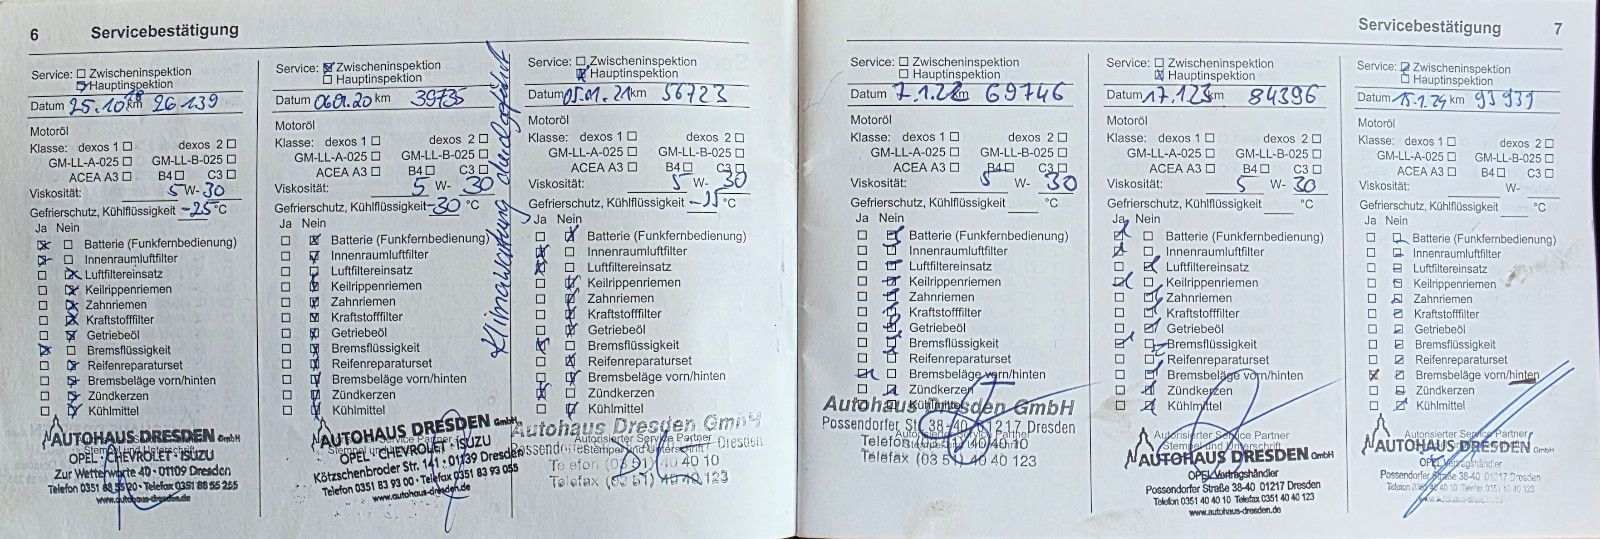 6 Servicebestätigung
Service: Zwischeninspektion
Hauptinspektion
Datum 25.10.18 km 26 139
Motoröl
Klasse: dexos 1 dexos 2
GM-LL-A-025 GM-LL-B-025
ACEA A3 B4 C3
Viskosität: 5 W- 30
Gefrierschutz, Kühlflüssigkeit -25 °C
Ja Nein
Batterie (Funkfernbedienung)
Innenraumluftfilter
Luftfiltereinsatz
Keilrippenriemen
Zahnriemen
Kraftstofffilter
Getriebeöl
Bremsflüssigkeit
Reifenreparaturset
Bremsbeläge vorn/hinten
Zündkerzen
Kühlmittel
AUTOHAUS DRESDEN GmbH
Stempel und Unterschrift
OPEL · CHEVROLET · ISUZU
Zur Wetterwarte 40 · 01109 Dresden
Telefon 0351 88 55 20 · Telefax 0351 88 55 255
www.autohaus-dresden.de
Service: Zwischeninspektion
Hauptinspektion
Datum 06.01.20 km 39735
Motoröl
Klasse: dexos 1 dexos 2
GM-LL-A-025 GM-LL-B-025
ACEA A3 B4 C3
Viskosität: 5 W- 30
Gefrierschutz, Kühlflüssigkeit -30 °C
Ja Nein
Batterie (Funkfernbedienung)
Innenraumluftfilter
Luftfiltereinsatz
Keilrippenriemen
Zahnriemen
Kraftstofffilter
Getriebeöl
Bremsflüssigkeit
Reifenreparaturset
Bremsbeläge vorn/hinten
Zündkerzen
Kühlmittel
AUTOHAUS DRESDEN GmbH
Service Partner
OPEL · CHEVROLET · ISUZU
Kötzschenbroder Str. 141 · 01139 Dresden
Telefon 0351 83 93 00 · Telefax 0351 83 93 055
www.autohaus-dresden.de
Klimawartung durchgeführt
Service: Zwischeninspektion
Hauptinspektion
Datum 05.01.21 km 56723
Motoröl
Klasse: dexos 1 dexos 2
GM-LL-A-025 GM-LL-B-025
ACEA A3 B4 C3
Viskosität: 5 W- 30
Gefrierschutz, Kühlflüssigkeit °C
Ja Nein
Batterie (Funkfernbedienung)
Innenraumluftfilter
Luftfiltereinsatz
Keilrippenriemen
Zahnriemen
Kraftstofffilter
Getriebeöl
Bremsflüssigkeit
Reifenreparaturset
Bremsbeläge vorn/hinten
Zündkerzen
Kühlmittel
Autohaus Dresden GmbH
Autorisierter Service Partner
Stempel und Unterschrift Dresden
Telefon (03 51) 40 40 10
Telefax (03 51) 40 40 123
Servicebestätigung 7
Service: Zwischeninspektion
Hauptinspektion
Datum 7.1.22 km 69746
Motoröl
Klasse: dexos 1 dexos 2
GM-LL-A-025 GM-LL-B-025
ACEA A3 B4 C3
Viskosität: 5 W- 30
Gefrierschutz, Kühlflüssigkeit °C
Ja Nein
Batterie (Funkfernbedienung)
Innenraumluftfilter
Luftfiltereinsatz
Keilrippenriemen
Zahnriemen
Kraftstofffilter
Getriebeöl
Bremsflüssigkeit
Reifenreparaturset
Bremsbeläge vorn/hinten
Zündkerzen
Kühlmittel
Autohaus Dresden GmbH
Possendorfer Str. 38-40, 01217 Dresden
Telefon (03 51) 40 40 10
Telefax (03 51) 40 40 123
Service: Zwischeninspektion
Hauptinspektion
Datum 17.1.23 km 84396
Motoröl
Klasse: dexos 1 dexos 2
GM-LL-A-025 GM-LL-B-025
ACEA A3 B4 C3
Viskosität: 5 W- 30
Gefrierschutz, Kühlflüssigkeit °C
Ja Nein
Batterie (Funkfernbedienung)
Innenraumluftfilter
Luftfiltereinsatz
Keilrippenriemen
Zahnriemen
Kraftstofffilter
Getriebeöl
Bremsflüssigkeit
Reifenreparaturset
Bremsbeläge vorn/hinten
Zündkerzen
Kühlmittel
Autorisierter Service Partner
Stempel und Unterschrift
AUTOHAUS DRESDEN GmbH
OPEL Vertragshändler
Possendorfer Straße 38-40 01217 Dresden
Telefon 0351 40 40 10 Telefax 0351 40 40 123
www.autohaus-dresden.de
Service: Zwischeninspektion
Hauptinspektion
Datum 15.1.24 km 93939
Motoröl
Klasse: dexos 1 dexos 2
GM-LL-A-025 GM-LL-B-025
ACEA A3 B4 C3
Viskosität: W-
Gefrierschutz, Kühlflüssigkeit °C
Ja Nein
Batterie (Funkfernbedienung)
Innenraumluftfilter
Luftfiltereinsatz
Keilrippenriemen
Zahnriemen
Kraftstofffilter
Getriebeöl
Bremsflüssigkeit
Reifenreparaturset
Bremsbeläge vorn/hinten
Zündkerzen
Kühlmittel
Autorisierter Service Partner
AUTOHAUS DRESDEN GmbH
OPEL Vertragshändler
Possendorfer Straße 38-40 01217 Dresden